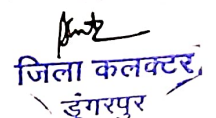 जिला कलक्टर,
डूंगरपुर